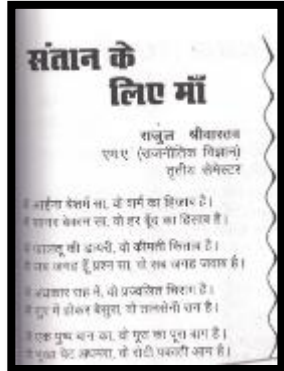 संतान के
लिए माँ
राजुल श्रीवास्तव
एम.ए. (राजनीतिक विज्ञान)
तृतीय सेमेस्टर
मैं आईना बेशर्म सा, वो शर्म का हिजाब है।
मैं सागर बेवरन सा, वो हर बूँद का हिसाब है।
मैं फालतू की डायरी, वो कीमती किताब है।
मैं सब जगह हूँ प्रश्न सा, वो सब जगह जवाब है।
मैं अंधकार राह में, वो प्रज्वलित चिराग है।
मैं सुर में होकर बेसुरा, वो तानसेनी राग है।
मैं एक पुष्प बाग का, वो पुष्प का पूरा बाग है।
मैं भूखा पेट अधमरा, वो रोटी पकाती आग है।